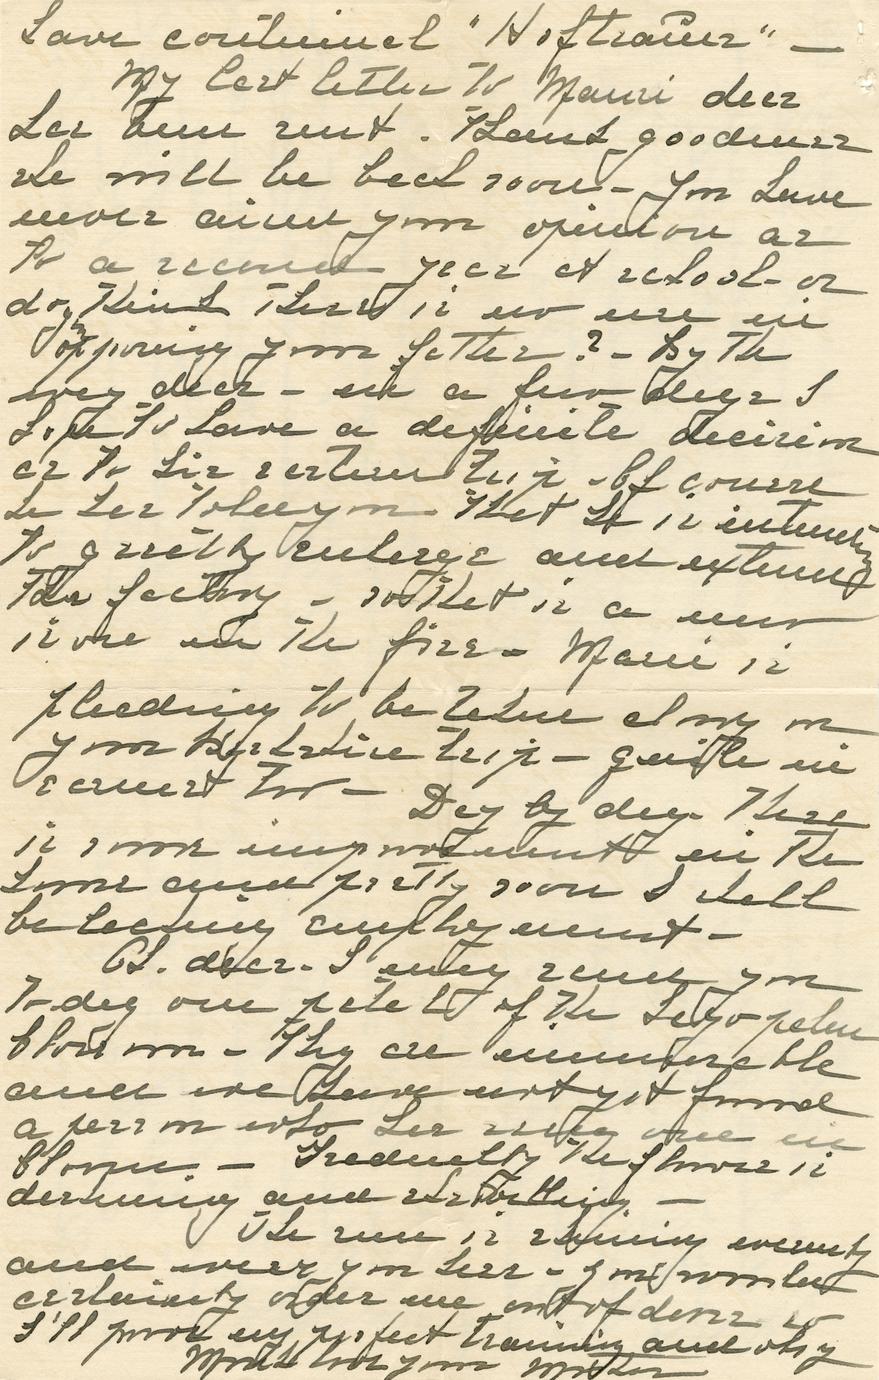 have continued "Hoftrauer" —
My last letter to Mausi dear
has been sent. Thank goodness
she will be back soon - you have
never aired your opinion as
to a second year at school - or
do you think there is no use in
opposing your father? - By the
way dear - in a few days I
hope to have a definite decision
as to his eastern trip - Of course
he has told you that he is intending
to greatly enlarge and extend
the factory - so that is a new
iron in the fire - Mausi is
pleading to be taken along on
your trip - quite in
earnest too - Day by day there
is some improvement in the
home and pretty soon I shall
be lacking employment -
Oh. dear - I may send you
to-day one petal of the Sago-palm
blossom - They are innumerable
and we have not yet found
a person who has seen one in
bloom - Gradually the flower is
and
The sun is shining warmly
and were you here - you would
certainly order me out of doors so
I'll prove my perfect training and obey
Much love your Mother